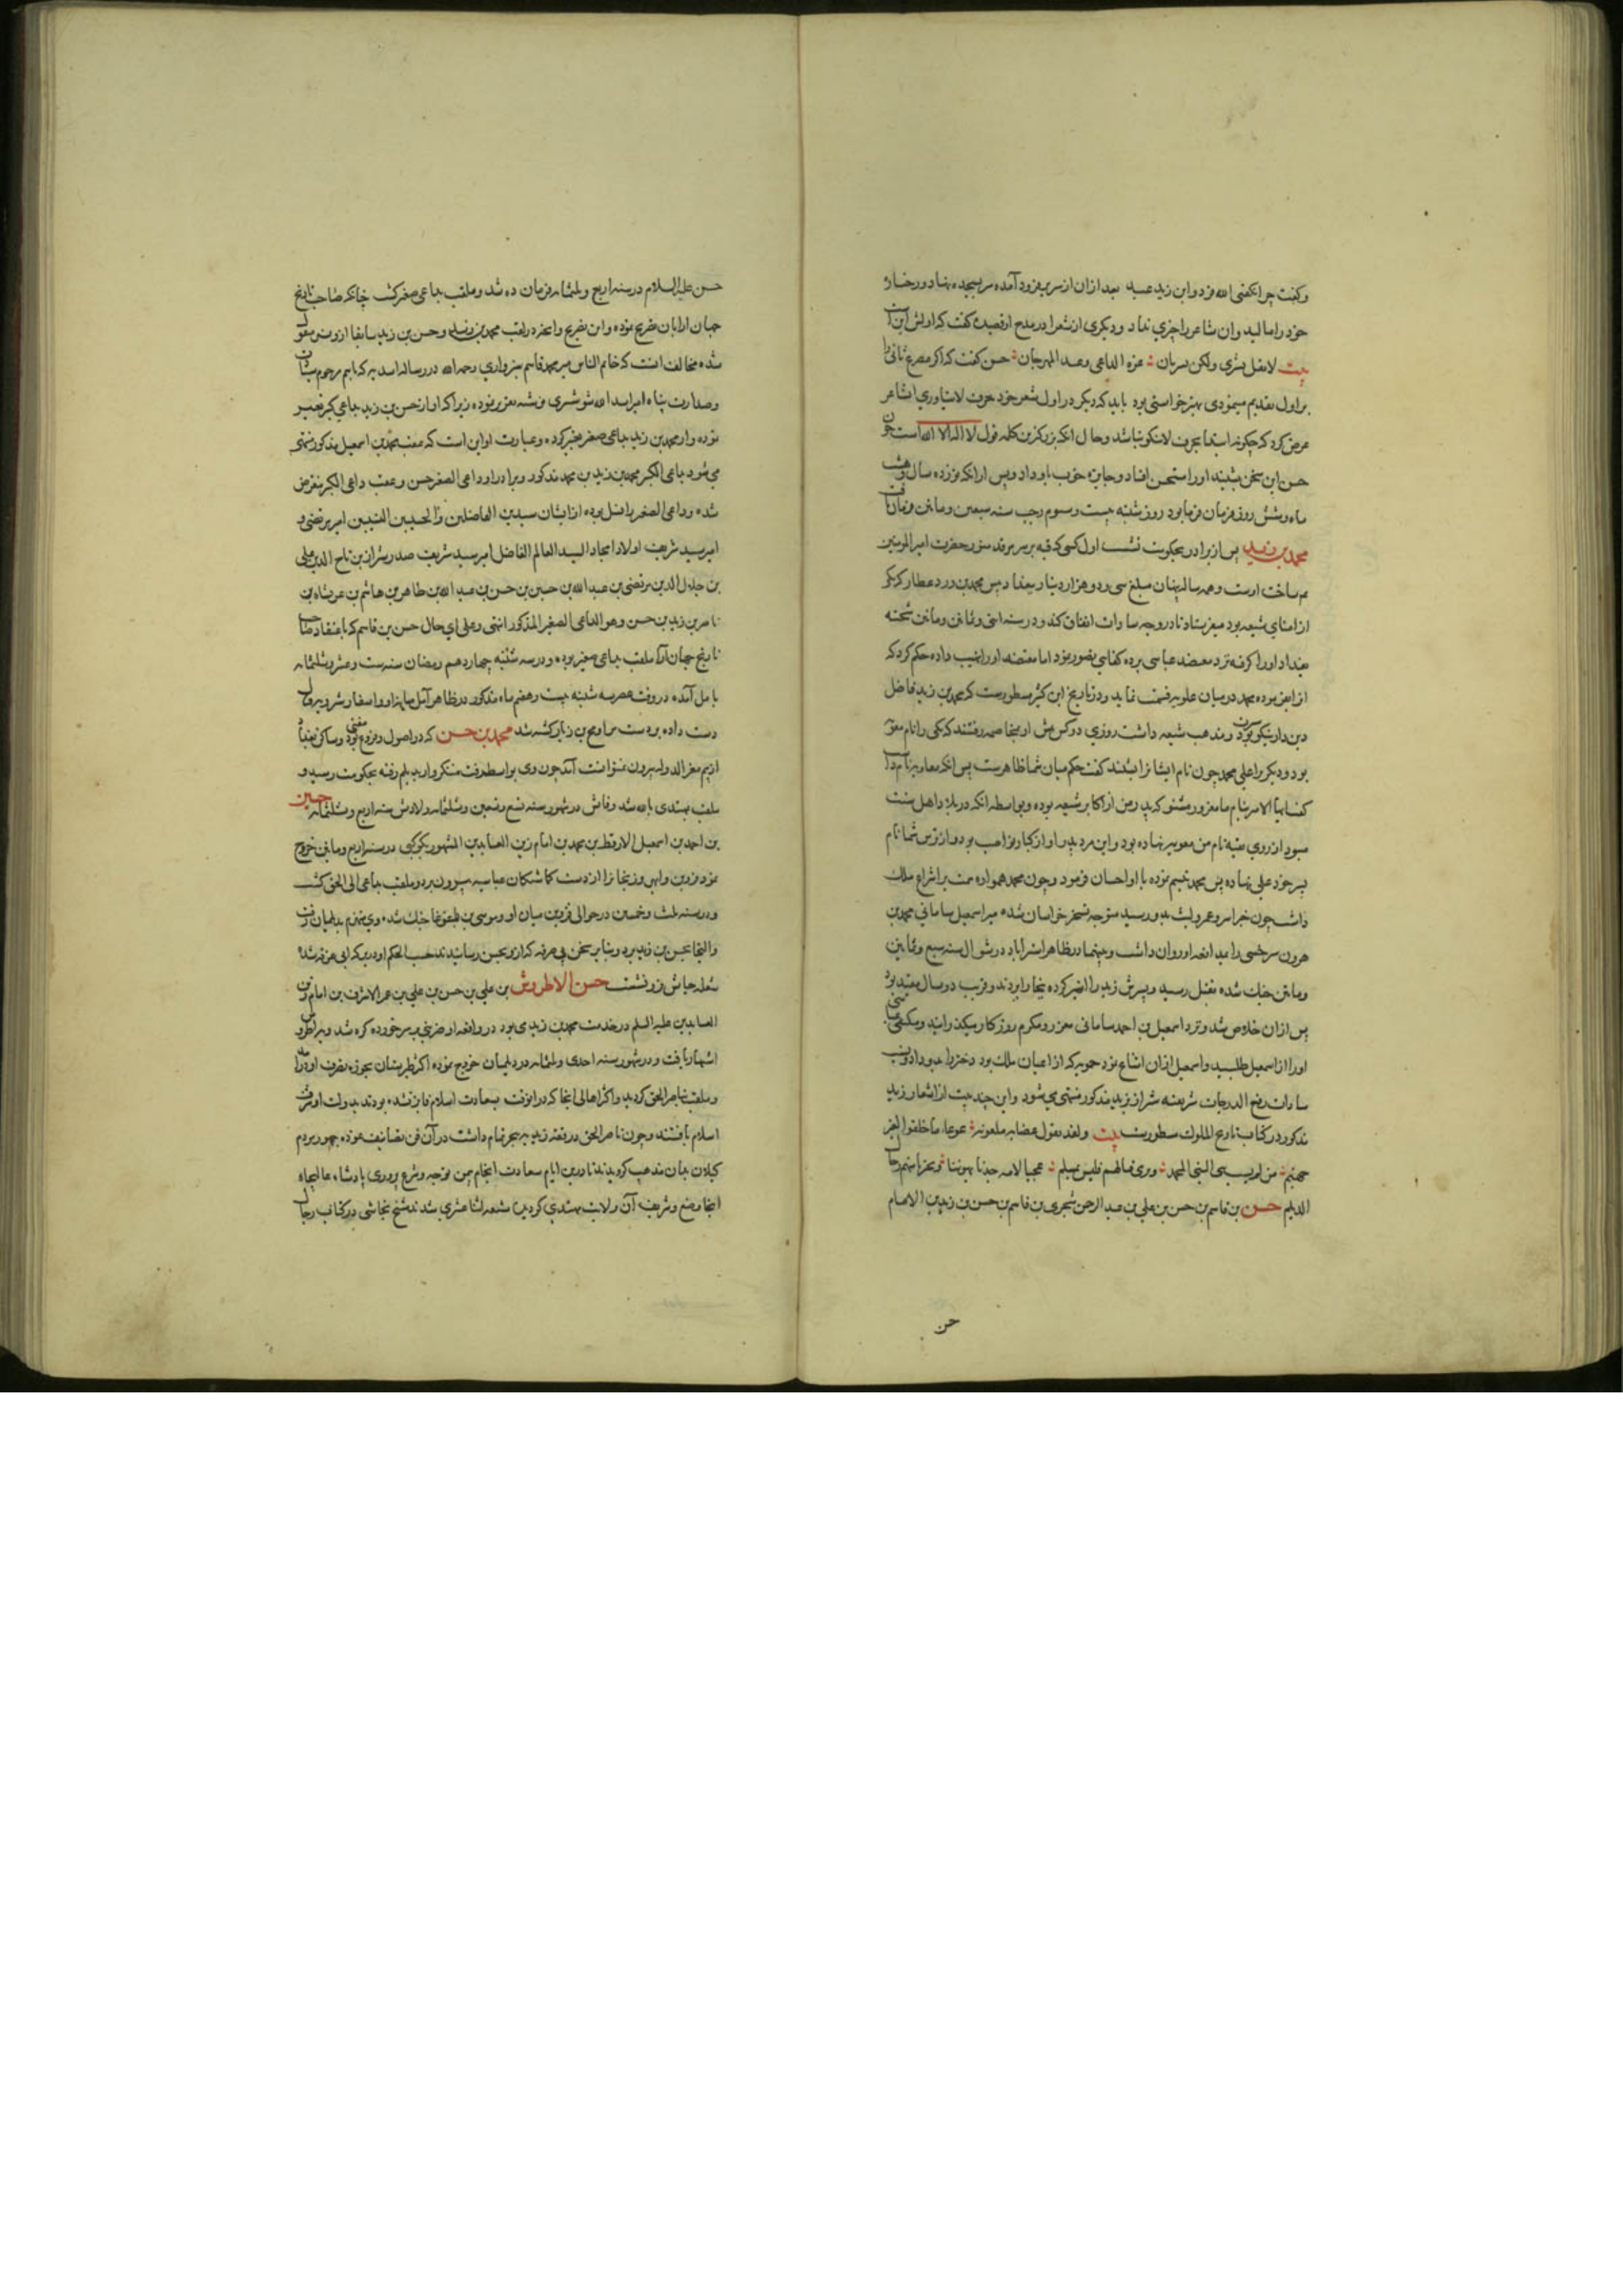 وکفت چرا نکفتی الله فرد وابن زید عبد بعد ازان از سریر فرود آمده سر بسجده نهاد ورخساره
خود را مالید وان شاعر را چیزی نداد ودیکری از شعرا در مدح او قصیده کفت که اولش این است
بیت لا تقل بشری ولکن بشریان غره الداعی وعید المهرجان حسن کفت که اکر مصرع ثانی را
بر اول تقدیم مینمودی بهتر خواستی بود باید که دیکر در اول شعر خود حرف لا نیاوری شاعر
عرض کرد که چکونه ابتدا بحرف لا نکو نباشد وحال انکه بزرکترین کلمه قول لا اله الا الله است چون
حسن این سخن بشنید او را مستحسن افتاد وجایزه خوب باو داد وپس از انکه نوزده سال وهشت
ماه وشش روز فرمان فرما بود روز شنبه بیست وسوم رجب سنه سبعین ومائتین وفات یافت
محمد بن زید پس از برادر بحکومت نشست اول کسی که قبه بر سر مرقد منور حضرت امیر المومنین
ع ساخت اوست وهر ساله پنهان مبلغ سی ودو هزار دینار ببغداد پیش محمد بن ورد عطار کر یکی
از امنای شیعه بود میفرستاد تا در وجه سادات انفاق کند ودر سنه اثنی وثمانین ومائتین شحنه
بغداد او را کرفته نزد معتضد عباسی برد
از این بوده محمد در میان علویه قسمت نماید ودر تاریخ ابن کثیر مسطورست که محمد بن زید فاضل
دین دار نیکو سیرت بود ومذهب شیعه داشت روزی دو کس پیش او بمخاصمه رفتند که یکی را نام معویه
بود ودیکر را علی محمد چون نام ایشانرا بشنید کفت حکم میان شما ظاهرست پس انکه معاویه نام داشت
کفت ایها الامیر بنام ما مغرور مشو که پدر من از اکابر شیعه بوده وبواسطه انکه در بلاد اهل سنت
میبود از روی تقیه نام من معویه نهاده بود واین مرد پدر او از کبار نواصب بود واز ترس شما نام
پسر خود علی نهاده پس محمد تبسم نموده با او احسان فرمود وچون محمد همواره همت بر انتزاع ملک
داشت چون خبر اسر عمرو لیث بدو رسید متوجه تسخیر خراسان شده میر اسمعیل سامانی محمد بن
هرون سرخسی را بمدافعه او روان داشت وبینهما در ظاهر استراباد در شوال سنه سبع وثمانین
ومائتین جنک شده بقتل رسید وپسرش زید را اسیر کرده ببخارا بردند وقریب دو سال مقید بود
پس ازان خلاص شد ونزد اسمعیل بن احمد سامانی معزز ومکرم روزکار میکذرانید ومکتفی عباسی
او را از اسمعیل طلبید واسمعیل ازان امتناع نمود حمویه که از اعیان ملک بود دختر را بدو داد ونسب
سادات رفیع الدرجات شریفه شیراز بزید مذکور منتهی میشود واین چند بیت از اشعار زید
مذکور در کتاب تاریخ الملوک مسطورست بیت ولقد تقول عصابه ملعونه غوغاء ما خلقوا لغیر
جهنم من لم یسب بنی النبی محمد ویری قتالهم فلیس بمسلم عجبا لامه جدنا یجفوننا وتجیرنا منهم رجال
الدیلم حسن بن قاسم بن حسن بن علی بن عبد الرحمن شجری بن قاسم بن حسن بن زید بن الامام
حسن
حسن علیه السلام در سنه اربع وثلثمائه فرمان ده شد وملقب بداعی صغیر کشت چنانکه صاحب تاریخ
جهان ارا بان تصریح نموده واین تصریح وانچه در لقب محمد بن زید وحسن بن زید سابقا از وی منقول
شده مخالف انست که خاتم الناس میر محمد قاسم سبزواری رحمه الله در رساله اسدیه که باسم مرحوم سیادت
وصدارت پناه امیر اسد الله شوشتری نوشته مقرر نموده زیرا که او از حسن بن زید بداعی کبیر تعبیر
نموده واز محمد بن زید بداعی صغیر تعبیر کرده وعبارت او این است که عقب محمد بن اسمعیل مذکور منتهی
می شود بداعی الکبیر محمد بن زید بن محمد مذکور وبرادر او داعی الصغیر حسن وعقب داعی الکبیر منقرض
شده وداعی الصغیر را نسل بوده از ایشان سیدین الفاضلین والحسیبین النسیبین امیر مرتضی و
امیر سید شریف اولاد امجاد السید العالم الفاضل امیر سید شریف صدر شیراز بن تاج الدین علی
بن جلال الدین مرتضی بن عبد الله بن حسین بن حسن بن عبد الله بن طاهر بن هاشم بن عربشاه بن
ناصر بن زید بن حسن وهو الداعی الصغیر المذکور انتهی وعلی ای حال حسن بن قاسم که باعتقاد صاحب
تاریخ جهان آرا ملقب بداعی صغیر بوده ودر سه شنبه چهاردهم رمضان سنه ست وعشر وثلثمائه
بامل آمده در وقت عصر سه شنبه بیست وهفتم ماه مذکور در ظاهر آمل میانه او واسفار شیرویه قتال
دست داده بر دست مرداویج بن زیار کشته شد محمد بن حسن که در اصول وفروع مفتی بود وساکن بغداد
از بیم معز الدوله بیرون نتوانست آمد چون وی بواسطه رفت متنکروار بدیلم رفته بحکومت رسید و
ملقب بمهتدی بالله شد وفاتش در شهور سنه تسع وخمسین وثلثمائه ولادتش سنه اربع وثلثمائه حسین
بن احمد بن اسمعیل الارقط بن محمد بن امام زین العابدین المشهور بکوکبی در سنه اربع ومائتین خروج
نمود قزوین وابهر وزنجانرا از دست کماشتکان عباسیه بیرون برد وملقب بداعی الی الحق کشت
ودر سنه ثلث وخمسین در حوالی قزوین میان او وموسی بن بغا جنک شد وی منهزم بدیلمان رفت
والتجا بحسن بن زید برد وبنا بر سخن بی صرفه که ازو بحسن رسانیدند حسب الحکم او در برکه ابی غرق شد
شعله حیاتش فرو نشست حسن الاطروش بن علی بن حسن بن علی بن عمر الاشرف بن امام زین
العابدین علیه السلم در خدمت محمد بن زید می بود در واقعه او ضربتی بر سر خورده کر شد وباطروش
اشتهار یافت ودر شهور سنه احدی وثلثمائه در دیلمان خروج نموده اکثر طبرستان بحوزه تصرف او درامد
وملقب بناصر الحق کردید واکثر اهالی انجا که درانوقت بسعادت اسلام فایز نشده بودند بدولت او شرف
اسلام یافتند وچون ناصر الحق در فقه زیدیه تبحر تمام داشت در آن فن تصانیف نموده جمهور مردم
کیلان بدان مذهب کرویدند تا درین ایام سعادت انجام بیمن توجه وشرع پروری پادشاه عالیجاه
انجا وضیع وشریف آن ولایت مهتدی کردیده شیعه اثنا عشری شدند شیخ نجاشی در کتاب رجال